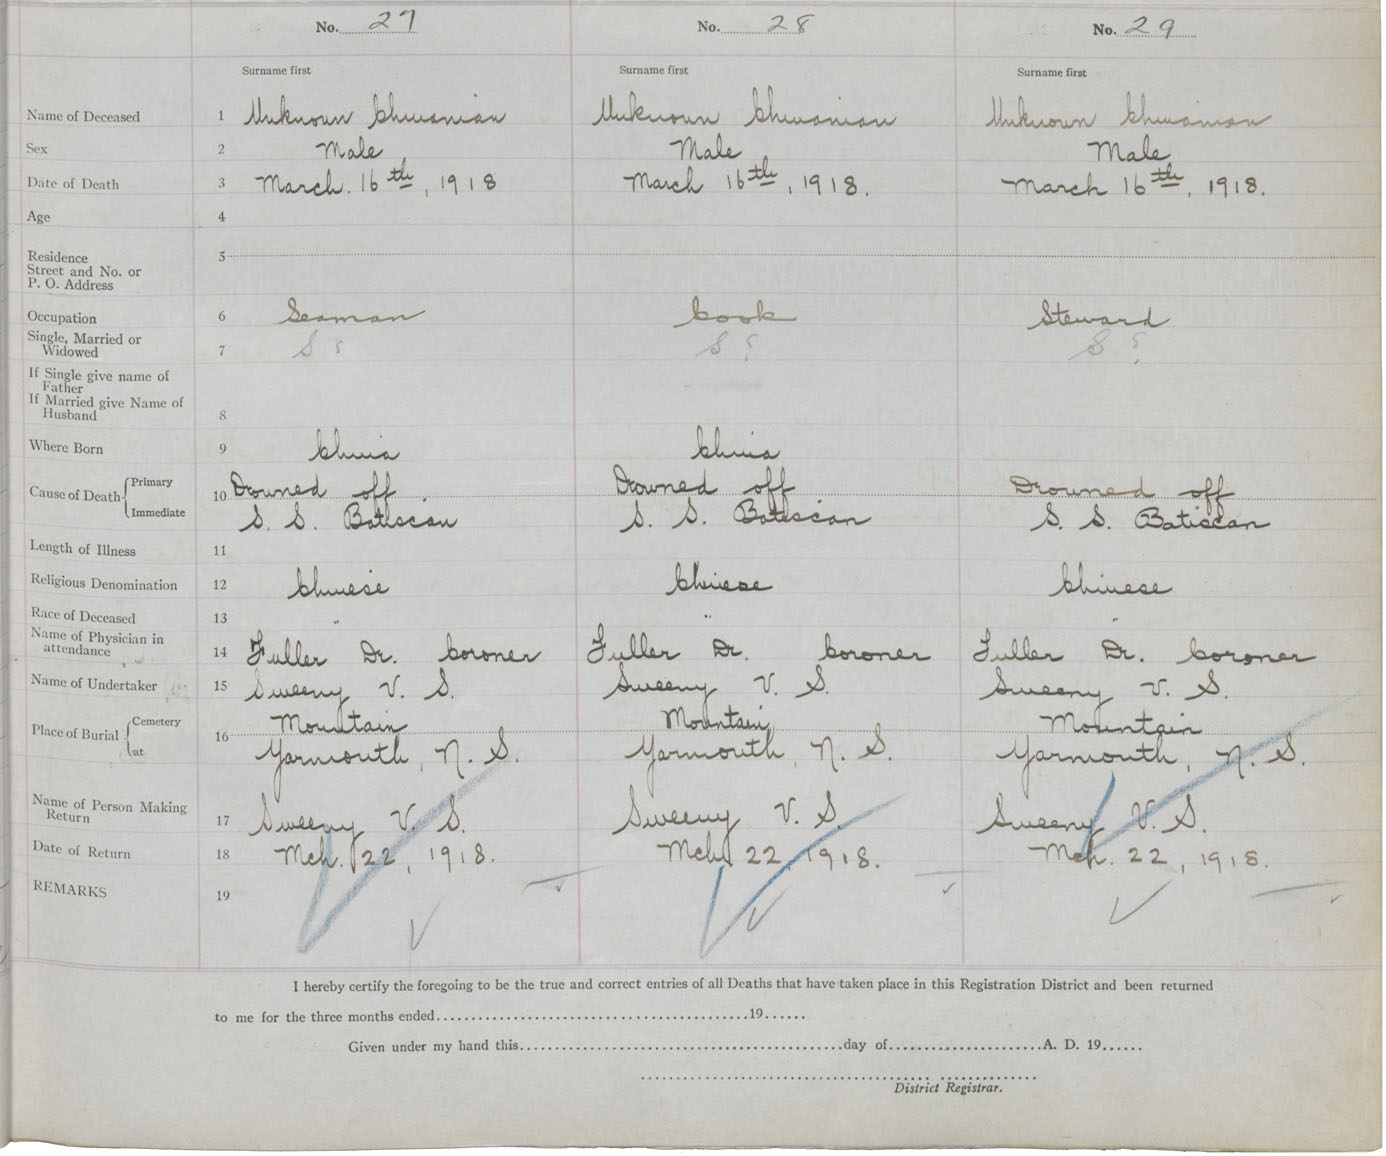 No. 27 No. 28 No. 29
Surname first Surname first Surname first
Name of Deceased 1 Unknown Chinanian Unknown Chinanian Unknown Chinanian
Sex 2 Male Male Male
Date of Death 3 March. 16th, 1918 March 16th, 1918. March 16th, 1918.
Age 4
Residence
Street and No. or
P. O. Address 5
Occupation 6 Seaman Cook Steward
Single, Married or
Widowed 7 S ? S ? S ?
If Single give name of
Father
If Married give Name of
Husband 8
Where Born 9 China China
Cause of Death Primary 10 Drowned off Drowned off Drowned off
Immediate S. S. Batiscan S. S. Batiscan S. S. Batiscan
Length of Illness 11
Religious Denomination 12 Chinese Chinese Chinese
Race of Deceased 13 " " "
Name of Physician in
attendance 14 Fuller Dr. Coroner Fuller Dr. Coroner Fuller Dr. Coroner
Name of Undertaker 15 Sweeny V. S. Sweeny V. S. Sweeny V. S.
Place of Burial Cemetery 16 Mountain Mountain Mountain
at Yarmouth, N. S. Yarmouth, N. S. Yarmouth, N. S.
Name of Person Making
Return 17 Sweeny V. S. Sweeny V. S. Sweeny V. S.
Date of Return 18 Mch. 22, 1918. Mch. 22, 1918. Mch. 22, 1918.
REMARKS 19
I hereby certify the foregoing to be the true and correct entries of all Deaths that have taken place in this Registration District and been returned
to me for the three months ended 19
Given under my hand this day of A. D. 19
District Registrar.